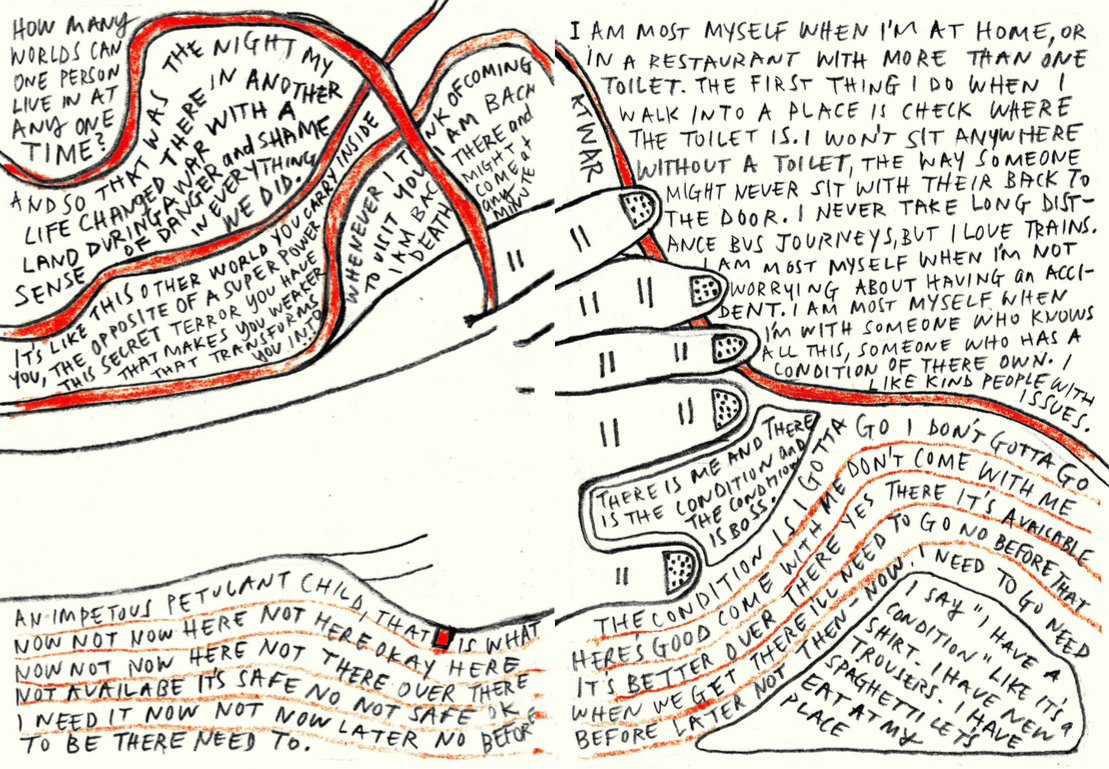 HOW MANY
WORLDS CAN
ONE PERSON
LIVE IN AT
ANY ONE
TIME?
AND SO THAT WAS THE NIGHT MY
LIFE CHANGED THERE IN ANOTHER
LAND DURING A WAR WITH A
SENSE OF DANGER and SHAME
IN EVERYTHING
WE DID.
IT'S LIKE THIS OTHER WORLD YOU CARRY INSIDE
YOU, THE OPPOSITE OF A SUPER POWER
THIS SECRET TERROR YOU HAVE
THAT MAKES YOU WEAKER
THAT TRANSFORMS
YOU INTO
WHENEVER I THINK OF COMING
TO VISIT YOU I AM BACK
I AM BACK THERE and
DEATH MIGHT
COME at
any
MINUTE
AT WAR
I AM MOST MYSELF WHEN I'M AT HOME, OR
IN A RESTAURANT WITH MORE THAN ONE
TOILET. THE FIRST THING I DO WHEN I
WALK INTO A PLACE IS CHECK WHERE
THE TOILET IS. I WON'T SIT ANYWHERE
WITHOUT A TOILET, THE WAY SOMEONE
MIGHT NEVER SIT WITH THEIR BACK TO
THE DOOR. I NEVER TAKE LONG DIST-
ANCE BUS JOURNEYS, BUT I LOVE TRAINS.
I AM MOST MYSELF WHEN I'M NOT
WORRYING ABOUT HAVING an ACCI-
DENT. I AM MOST MYSELF WHEN
I'M WITH SOMEONE WHO KNOWS
ALL THIS, SOMEONE WHO HAS A
CONDITION OF THERE OWN. I
LIKE KIND PEOPLE WITH
ISSUES.
THERE IS ME AND THERE
IS THE CONDITION and
THE CONDITION
IS BOSS.
AN IMPETOUS PETULANT CHILD, THAT IS WHAT
NOW NOT NOW HERE NOT HERE OKAY HERE
NOW NOT NOW HERE NOT THERE OVER THERE
NOT AVAILABE IT'S SAFE NO NOT SAFE OK
I NEED IT NOW NOT NOW LATER NO BEFORE
TO BE THERE NEED TO.
THE CONDITION IS I GOTTA GO I DON'T GOTTA GO
HERE'S GOOD COME WITH ME DON'T COME WITH ME
IT'S BETTER OVER THERE YES THERE IT'S AVAILABLE
WHEN WE GET THERE I'LL NEED TO GO NO BEFORE THAT
BEFORE LATER NOT THEN - NOW. I NEED TO GO NEED
I SAY "I HAVE A
CONDITION" LIKE IT'S A
SHIRT. I HAVE NEW
TROUSERS. I HAVE
SPAGHETTI LET'S
EAT AT MY
PLACE